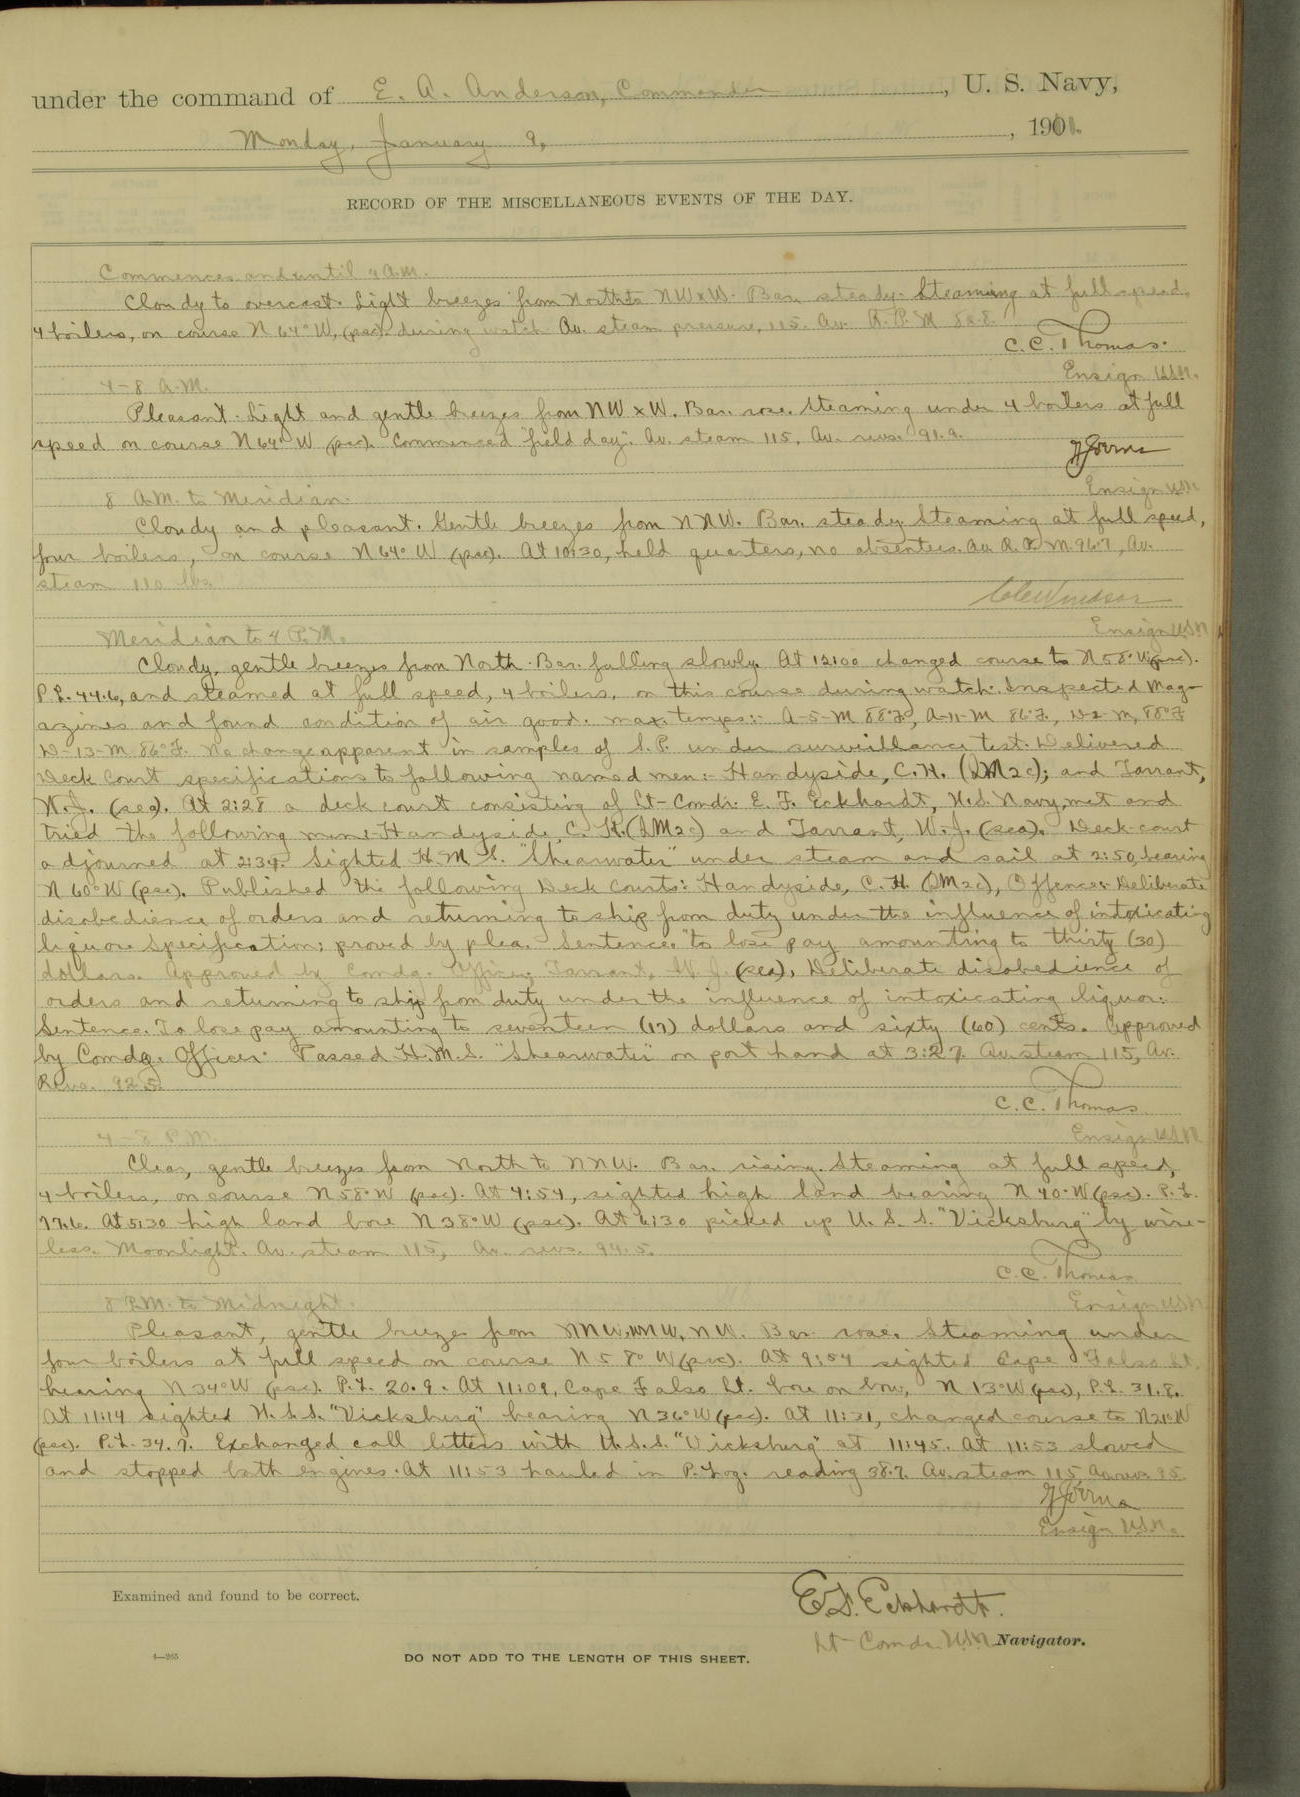 under the command of E. A. Anderson, Commander, U. S. Navy,
Monday, January 9, 191
RECORD OF THE MISCELLANEOUS EVENTS OF THE DAY.
Commences and until 4 A.M.
Cloudy to overcast. Light breezes from North to NWxW. Bar. steady. Steaming at full speed,
4 boilers, on course N 64° W, (psc). during watch. Av. steam pressure, 115. Av. R. P. M 88.8.
C. C. Thomas.
Ensign U.S.N.
4-8 A.M.
Pleasant. Light and gentle breezes from NW x W. Bar. rose. Steaming under 4 boilers at full
speed on course N 64° W (psc). Commenced "field day". Av. steam 115, Av. revs. 91.9.
Ensign USN.
8 A.M. to Meridian.
Cloudy and pleasant. Gentle breezes from NNW. Bar. steady. Steaming at full speed,
four boilers, on course N 64° W (psc). At 10:30, held quarters, no absentees. Av. R. P. M. 96.7, Av.
steam 110 lbs.
Windsor
Ensign U.S.N
Meridian to 4 P.M.
Cloudy, gentle breezes from North. Bar. falling slowly. At 12:00 changed course to N 58° W (psc).
P.L. 44.6, and steamed at full speed, 4 boilers, on this course during watch. Inspected Mag-
azines and found condition of air good. Max. temps:- A-5-M 88°F, A-11-M 86°F., D-2-M, 88°F
D-13-M 86°F. No change apparent in samples of S.P. under surveillance test. Delivered
Deck Court specifications to following named men:- Handyside, C.H. (SM2c); and Tarrant,
W.J. (sea). At 2:28 a deck court consisting of Lt-Comdr. E. F. Eckhardt, U.S. Navy, met and
tried the following men:- Handyside, C. H. (SM2c) and Tarrant, W. J. (sea). Deck court
adjourned at 2:39. Sighted H. M. S. "Shearwater" under steam and sail at 2:50, bearing
N 60° W (psc). Published the following Deck Courts: Handyside, C. H. (SM2c), Offence:- Deliberate
disobedience of orders and returning to ship from duty under the influence of intoxicating
liquor. Specification: proved by plea. Sentence. "to lose pay amounting to thirty (30)
dollars. Approved by Comdg. Officer; Tarrant, W. J. (sea), Deliberate disobedience of
orders and returning to ship from duty under the influence of intoxicating liquor.
Sentence. To lose pay amounting to seventeen (17) dollars and sixty (60) cents. Approved
by Comdg. Officer. Passed H.M.S. "Shearwater" on port hand at 3:27. Av. steam 115, Av.
Revs. 92.5.
C. C. Thomas
Ensign USN
4-8 P.M.
Clear, gentle breezes from North to NNW. Bar. rising. Steaming at full speed,
4 boilers, on course N 58° W (psc). At 4:54, sighted high land bearing N 40° W (psc). P. L.
77.6. At 5:30 high land bore N 38° W (psc). At 6:30 picked up U. S. S. "Vicksburg" by wire-
less. Moonlight. Av. steam 115, Av. revs. 94.5.
C. C. Thomas
Ensign USN
8 P.M. to Midnight.
Pleasant, gentle breezes from NNW, WNW, NW. Bar. rose. Steaming under
four boilers at full speed on course N 58° W (psc). At 9:54 sighted Cape Falso Lt.
bearing N 34° W (psc). P.L. 20.9. At 11:09, Cape Falso Lt. bore on bow, N 13° W (psc), P.L. 31.8.
At 11:14 sighted U.S.S. "Vicksburg" bearing N 36° W (psc). At 11:31, changed course to N 21° W
(psc). P.L. 34.7. Exchanged call letters with U.S.S. "Vicksburg" at 11:45. At 11:53 slowed
and stopped both engines. At 11:53 hauled in P.Log. reading 38.7. Av. steam 115 Av. revs. 95
Ensign U.S.N.
Examined and found to be correct.
E. F. Eckhardt.
Lt-Comdr. U.S.N. Navigator.
4—265
DO NOT ADD TO THE LENGTH OF THIS SHEET.